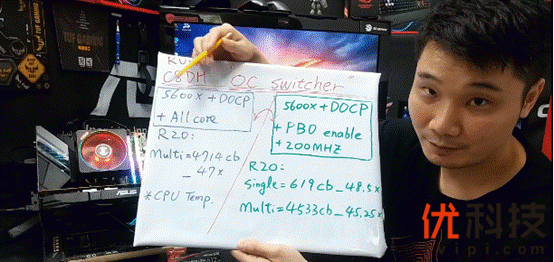 C8DH OC Switcher
5600X + DOCP
+ Allcore
R20:
Multi=4714cb
_ 47x
*CPU Temp.
5600X + DOCP
+ PBO enable
+ 200MHZ
R20:
Single=619cb_48.5x
Multi=4533cb_45.25x
优科技
vipi.com